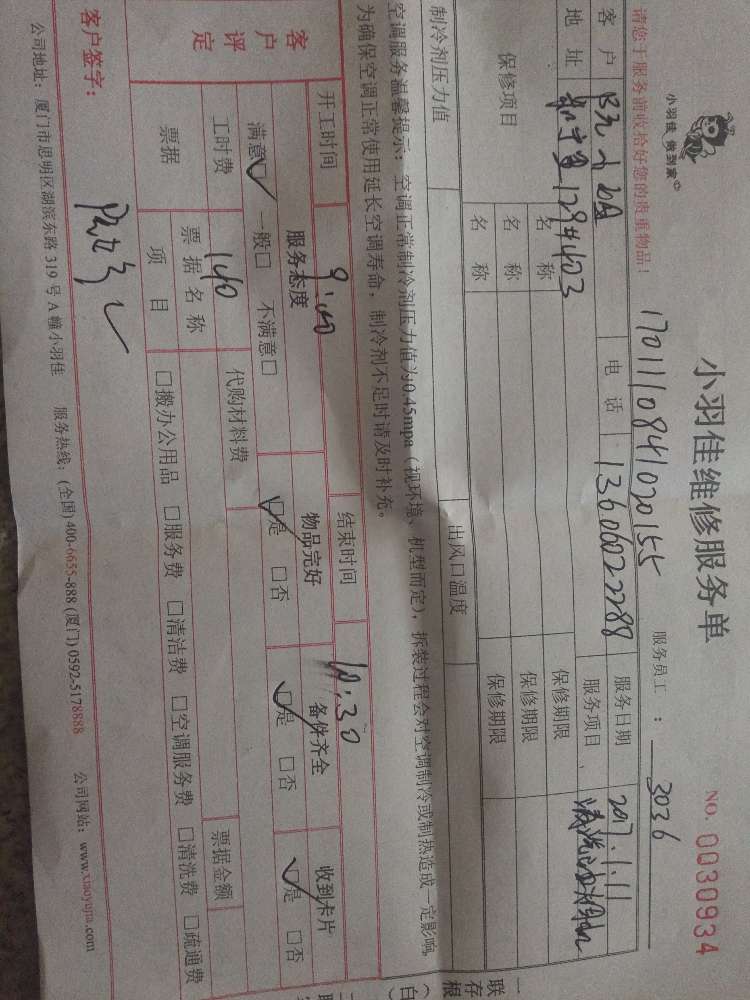 小羽佳 做到家
小羽佳维修服务单
NO. 0030934
1701110841020155
服务员工 : 3036
请您于服务前收拾好您的贵重物品!
客户 电话 13606022288 服务日期 2017.1.11
地址 服务项目
保修项目 名称 保修期限
名称 保修期限
名称 保修期限
制冷剂压力值 出风口温度
空调服务温馨提示: 空调正常制冷剂压力值为0.45mpa (视环境、机型而定), 拆装过程会对空调制冷或制热造成一定影响,
为确保空调正常使用延长空调寿命, 制冷剂不足时请及时补充。
开工时间 9:00 结束时间 10:30
客户评定 服务态度 物品完好 备件齐全 收到卡片
满意☑ 一般□ 不满意□ ☑是 □否 ☑是 □否 ☑是 □否
工时费 140 代购材料费 票据金额
票据 票据名称
项目 □搬办公用品 □服务费 □清洁费 □空调服务费 □清洗费 □疏通费
客户签字:
公司地址: 厦门市思明区湖滨东路319号A幢小羽佳 服务热线: (全国)400-6655-888 (厦门) 0592-5178888 公司网站: www.xiaoyujia.com
一联存根(白